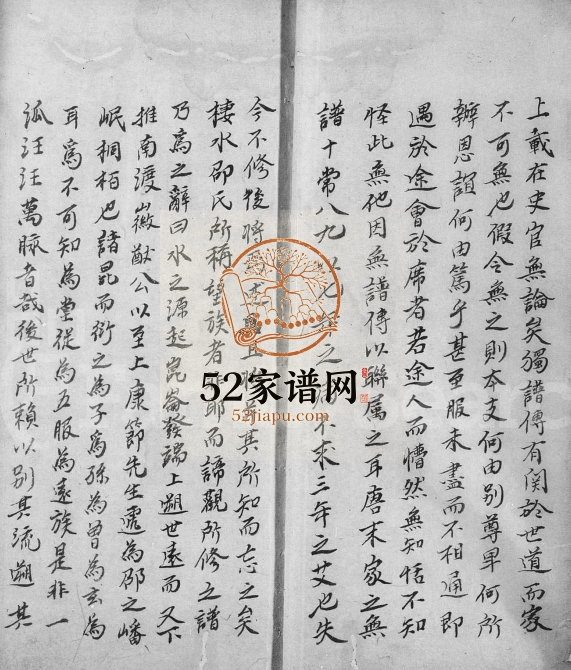 上載在史官無論矣獨譜傳有関於世道而家
不可無也假令無之則本支何由别尊卑何所
辨恩誼何由篤乎甚至服未盡而不相通即
遇於途會於席者若途人而懵然無知恬不知
怪此無他因無譜傳以聯属之耳唐末家之無
譜十常八九以七年之不求三年之艾也失
今不修後將其所知而忘之矣
棲水邵氏所稱望族者非耶而諦觀所修之譜
乃為之辭曰水之源起崑崙發端上遡世遠而又下
推南渡徽猷公以至上康節先生遞為邵之嶓
岷桐柏也諸昆而衍之為子為孫為曾為玄為
耳為不可知為堂從為五服為遠族是非一
派汪汪萬脉者哉後世所賴以别其流遡其
52家谱网
52jiapu.com